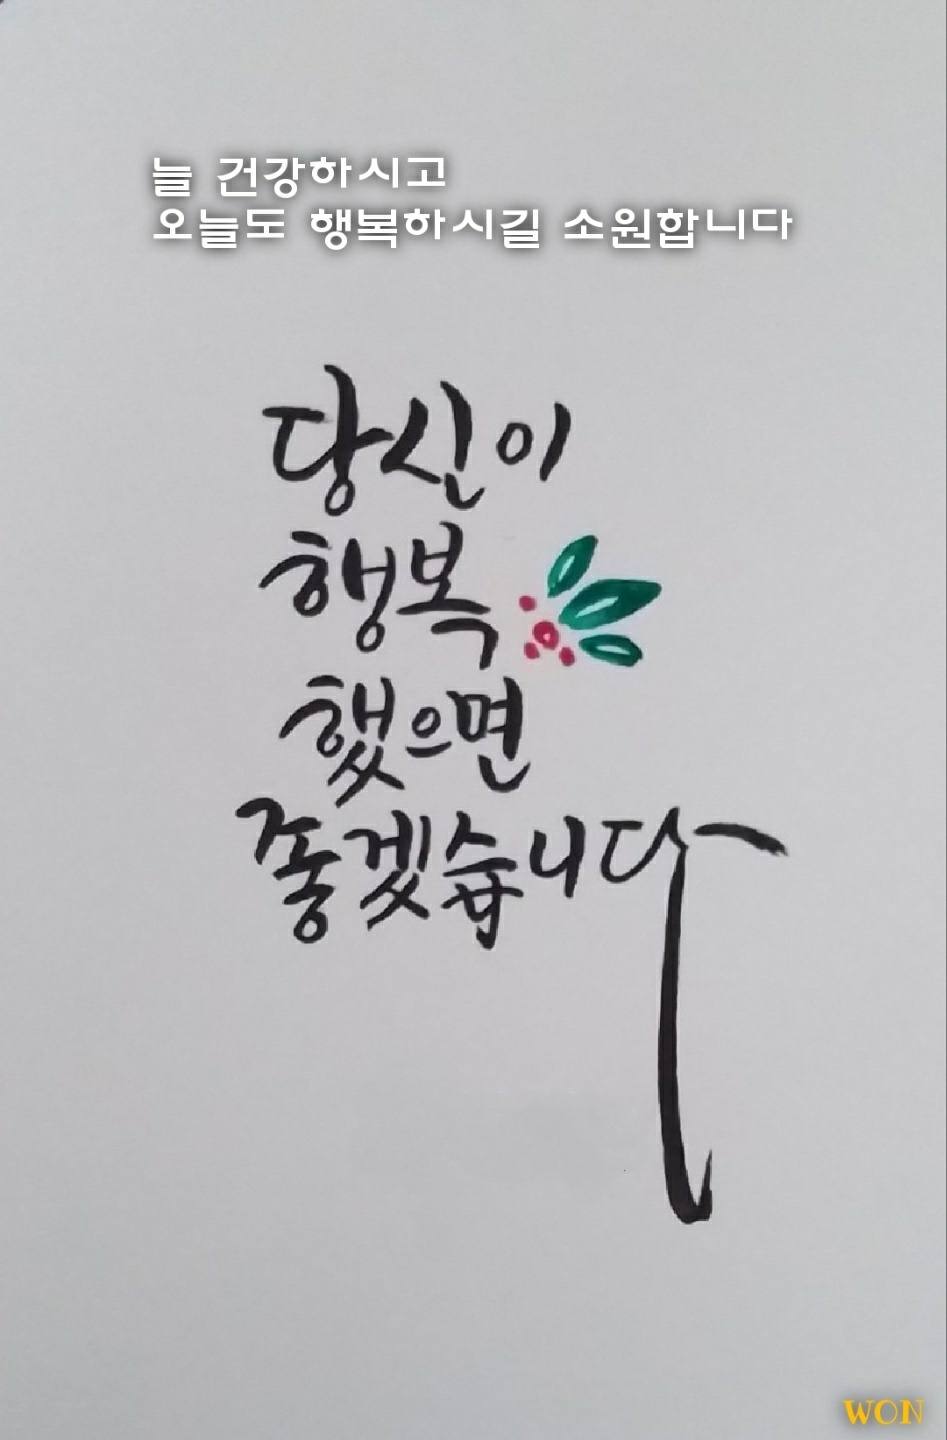 늘 건강하시고
오늘도 행복하시길 소원합니다
당신이
행복
했으면
좋겠습니다
WON